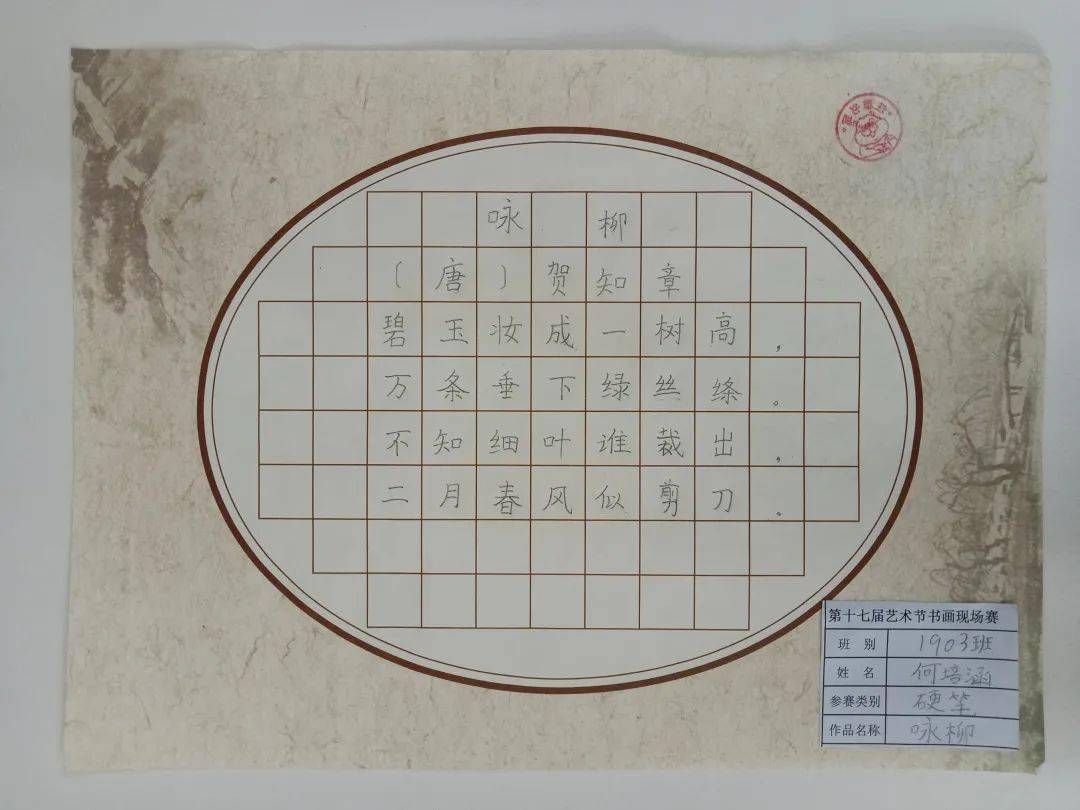 咏柳
（唐）贺知章
碧玉妆成一树高，
万条垂下绿丝绦。
不知细叶谁裁出，
二月春风似剪刀。
第十七届艺术节书画现场赛
班别 1903班
姓名 何培涵
参赛类别 硬笔
作品名称 咏柳